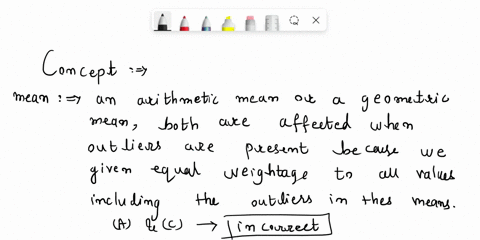 Concept :⇒
mean :⇒ an arithmetic mean or a geometric
mean, both are affected when
outliers are present because we
given equal weightage to all values
including the outliers in thes means.
(A) & (C) → incorrect